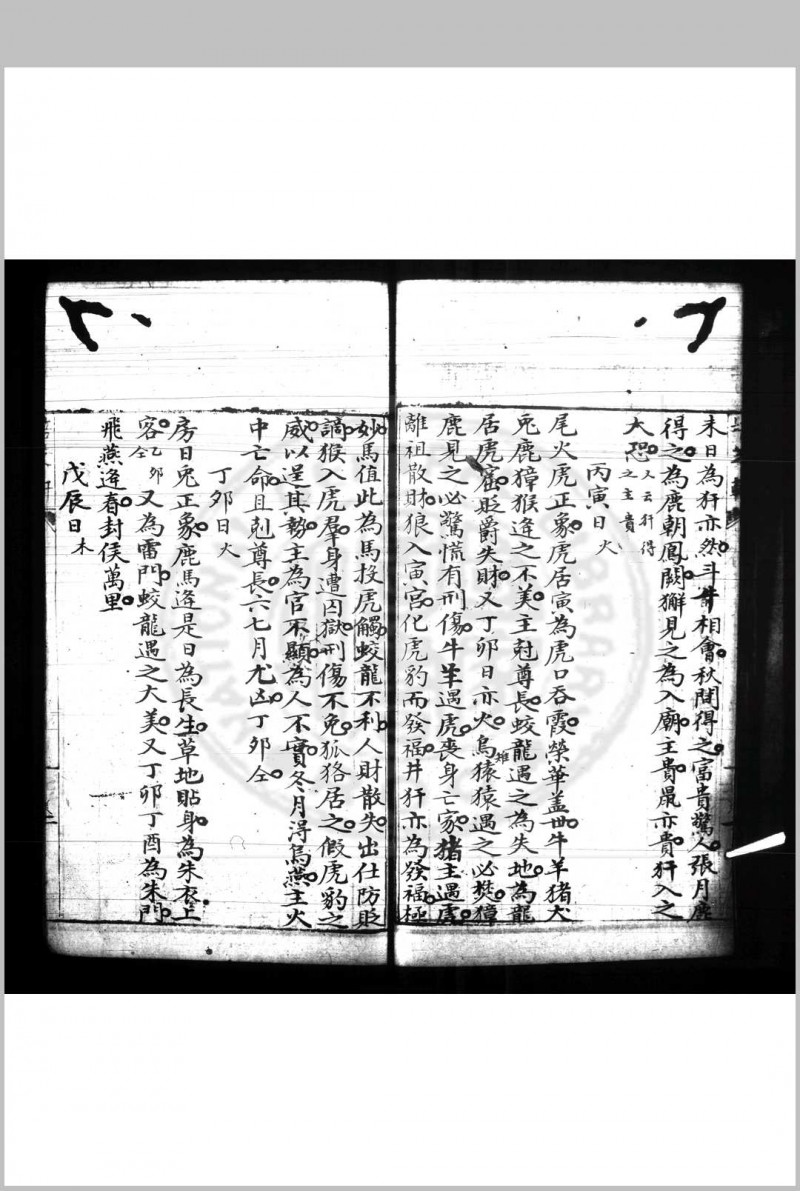 未日為犴亦然斗牛相會秋間得之富貴驚人張月鹿
得之為鹿朝鳳闕獬見之為入廟王貴鼠亦貴犴入之
大恐又云犴得之主貴
丙寅日火
尾火虎正象虎居寅為虎口吞霞榮華盖世牛羊猪犬
兎鹿獐猴逄之不美主尅尊長蛟龍遇之為失地為龍
居虎窟貶爵失財又丁卯日亦火烏猿猿遇之必焚獐
鹿見之必驚慌有刑傷牛羊遇虎喪身亡家猪主遇虎
離祖散財狼入寅宮化虎豹而發福井犴亦為發福極
妙馬值此為馬投虎觸蛟龍不利人財散失出仕防貶
謫猴入虎羣身遭囚獄刑傷不免狐狢居之假虎豹之
威以逞其勢主為官不顯為人不實冬月淂烏燕主火
中亡命且剋尊長六七月尤凶丁卯仝
丁卯日火
房日兎正象鹿馬逄是日為長生草地貼身為朱衣上
客乙卯仝又為雷門蛟龍遇之大美又丁卯丁酉為朱門
飛燕逄春封侯萬里
戊辰日木